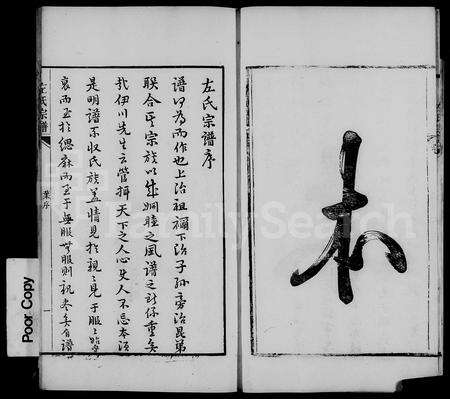 本
左氏宗譜序
譜何為而作也上治祖禰下治子孫旁治昆弟
聯合其宗族以成婣睦之風譜之所係重矣
哉伊川先生云管攝天下之人心使人不忘本須
是明譜系收氏族蓋情見於親親見於服服始於
衰而至於緦麻而至於無服無服則親盡矣自譜
左氏宗譜
葉序
一
Poor Copy
FamilySearch